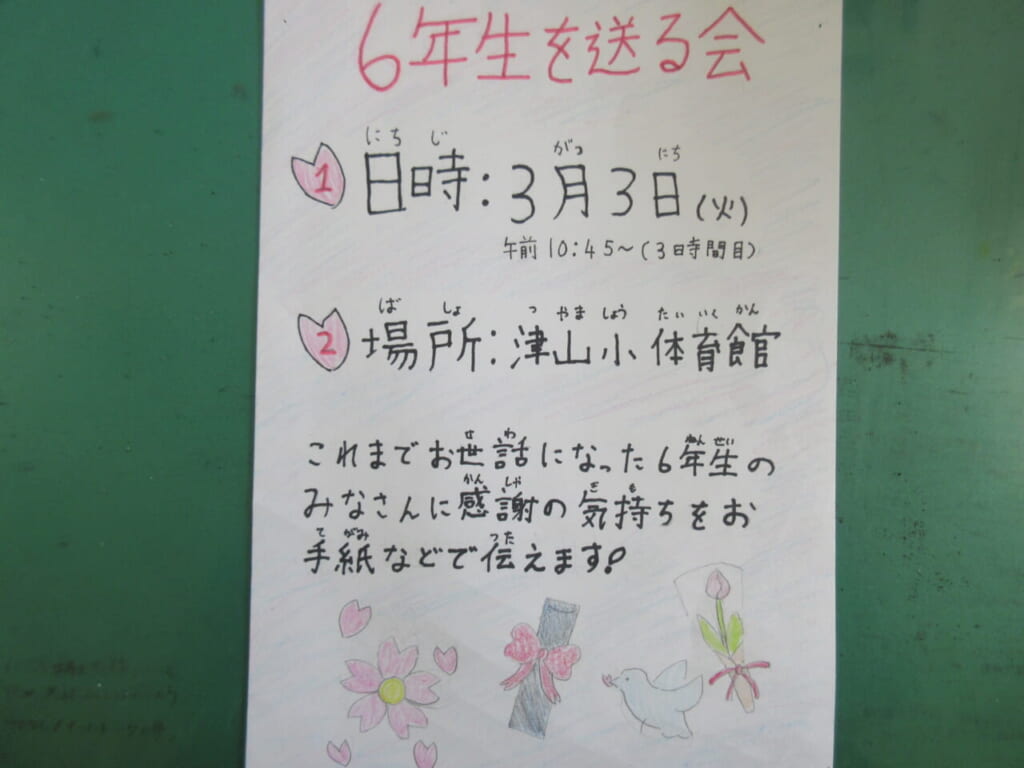 6年生を送る会
にち じ がつ にち
1 日時:3月3日(火)
午前10:45～(3時間目)
ば しょ つ やま しょう たい いく かん
2 場所:津山小 体育館
せ わ ねん せい
これまでお世話になった6年生の
かん しゃ き も
みなさんに感謝の気持ちをお
て がみ つた
手紙などで伝えます!